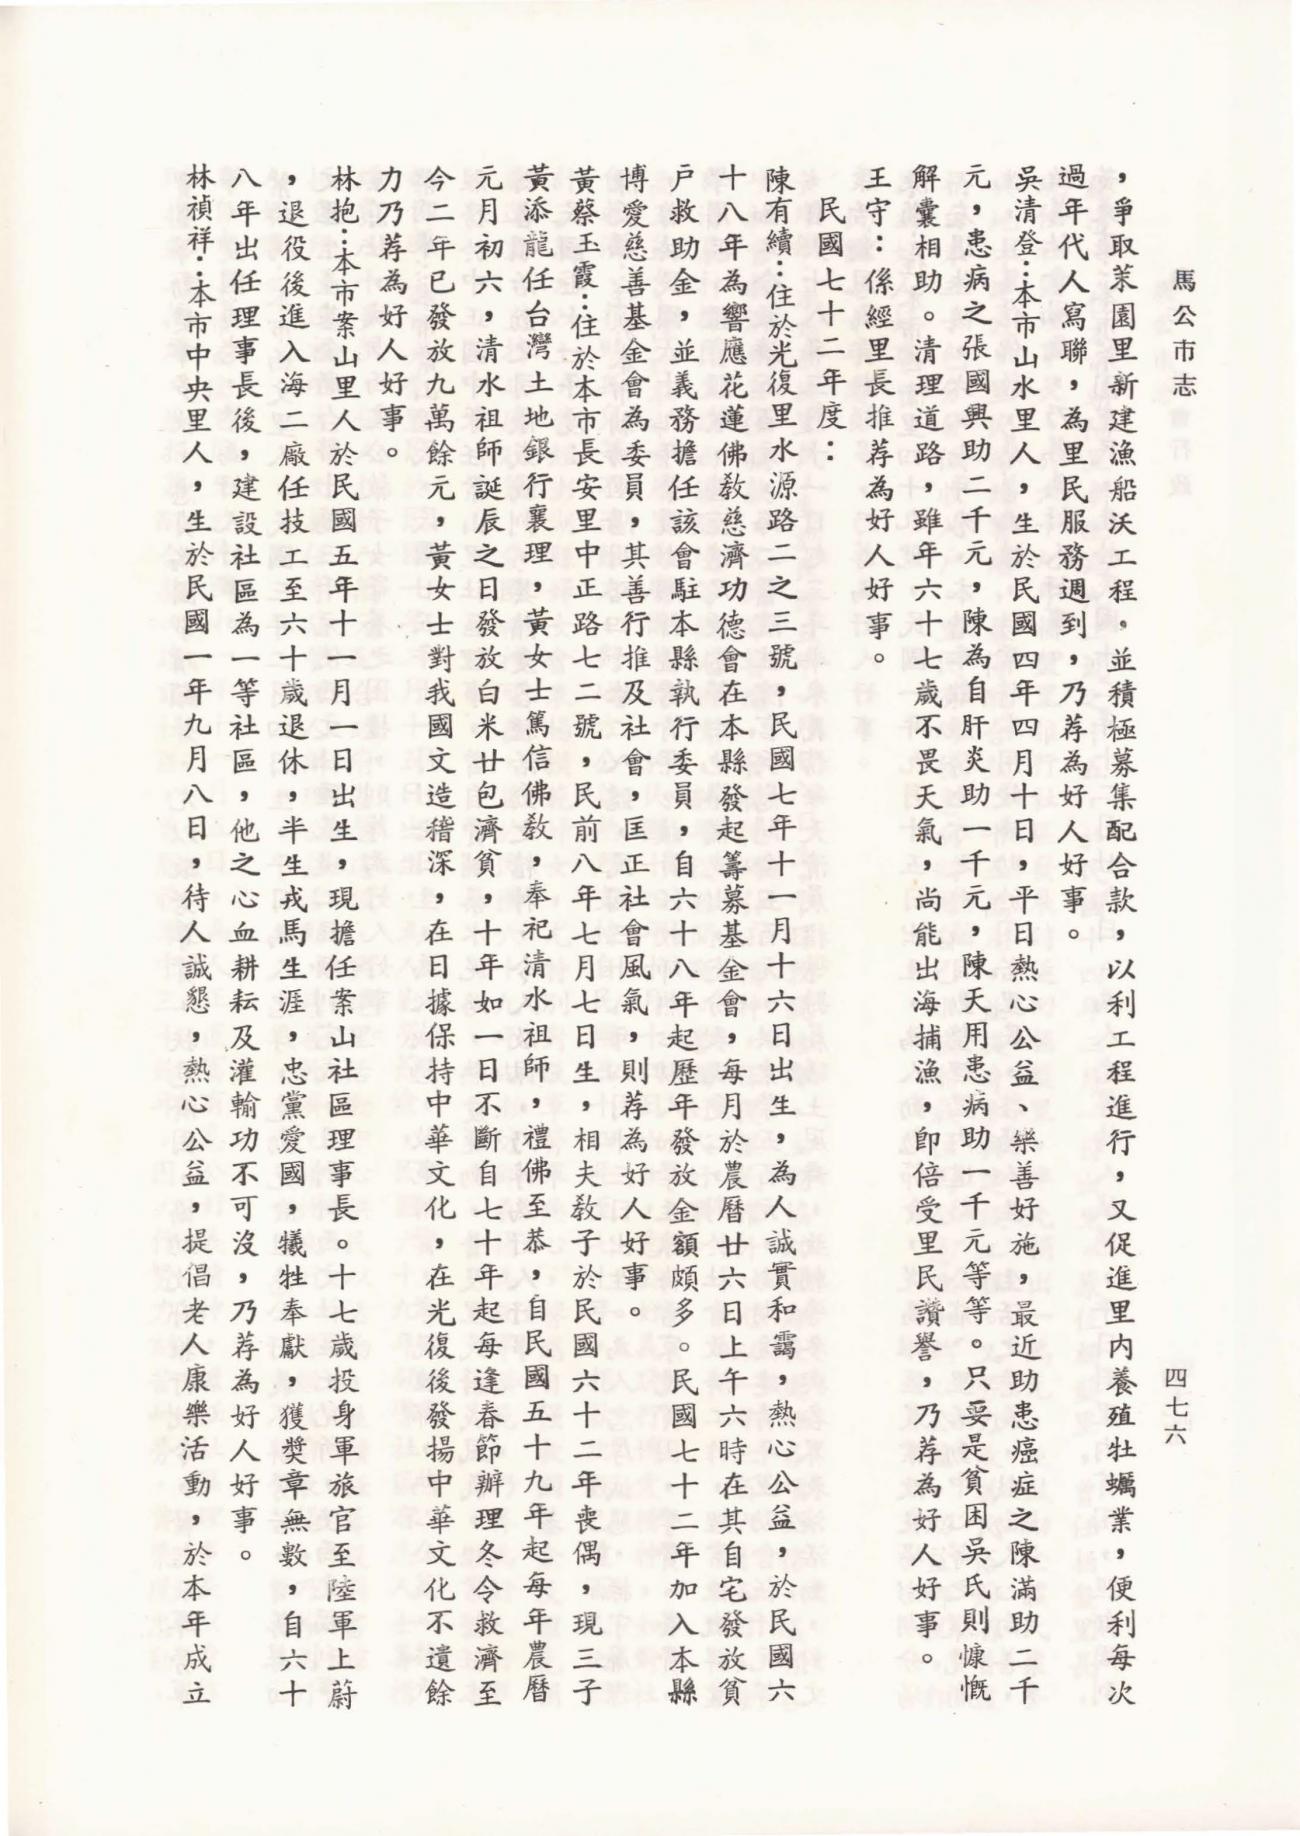 馬公市志
四七六
，爭取菜園里新建漁船沃工程。並積極募集配合款，以利工程進行，又促進里內養殖牡蠣業，便利每次
過年代人寫聯，為里民服務週到，乃荐為好人好事。
吳清登：本市山水里人，生於民國四年四月十日，平日熱心公益、樂善好施，最近助患癌症之陳滿助二千
元，患病之張國興助二千元，陳為自肝炎助一千元，陳天用患病助一千元等等。只要是貧困吳氏則慷慨
解囊相助。清理道路，雖年六十七歲不畏天氣，尚能出海捕漁，即倍受里民讚譽，乃荐為好人好事。
王守：係經里長推荐為好人好事。
民國七十二年度：
陳有續：住於光復里水源路二之三號，民國七年十一月十六日出生，為人誠實和靄，熱心公益，於民國六
十八年為響應花蓮佛教慈濟功德會在本縣發起籌募基金會，每月於農曆廿六日上午六時在其自宅發放貧
戶救助金，並義務擔任該會駐本縣執行委員，自六十八年起歷年發放金額頗多。民國七十二年加入本縣
博愛慈善基金會為委員，其善行推及社會，匡正社會風氣，則荐為好人好事。
黃蔡玉霞：住於本市長安里中正路七二號，民前八年七月七日生，相夫教子於民國六十二年喪偶，現三子
黃添龍任台灣土地銀行襄理，黃女士篤信佛教，奉祀清水祖師，禮佛至恭，自民國五十九年起每年農曆
元月初六，清水祖師誕辰之日發放白米廿包濟貧，十年如一日不斷自七十年起每逢春節辦理冬令救濟至
今二年已發放九萬餘元，黃女士對我國文造稽深，在日據保持中華文化，在光復後發揚中華文化不遺餘
力乃荐為好人好事。
林抱：本市案山里人於民國五年十一月一日出生，現擔任案山社區理事長。十七歲投身軍旅官至陸軍上蔚
，退役後進入海二廠任技工至六十歲退休，半生戎馬生涯，忠黨愛國，犧牲奉獻，獲獎章無數，自六十
八年出任理事長後，建設社區為一等社區，他之心血耕耘及灌輸功不可沒，乃荐為好人好事。
林禎祥：本市中央里人，生於民國一年九月八日，待人誠懇，熱心公益，提倡老人康樂活動，於本年成立